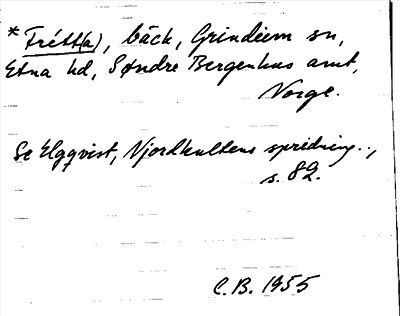 * Frétt(a), bäck, Grindeim sn,
Etna hd, Søndre Bergenhus amt,
Norge.
Se Elgqvist, Njordkultens spridning..,
s. 82.
C.B. 1955